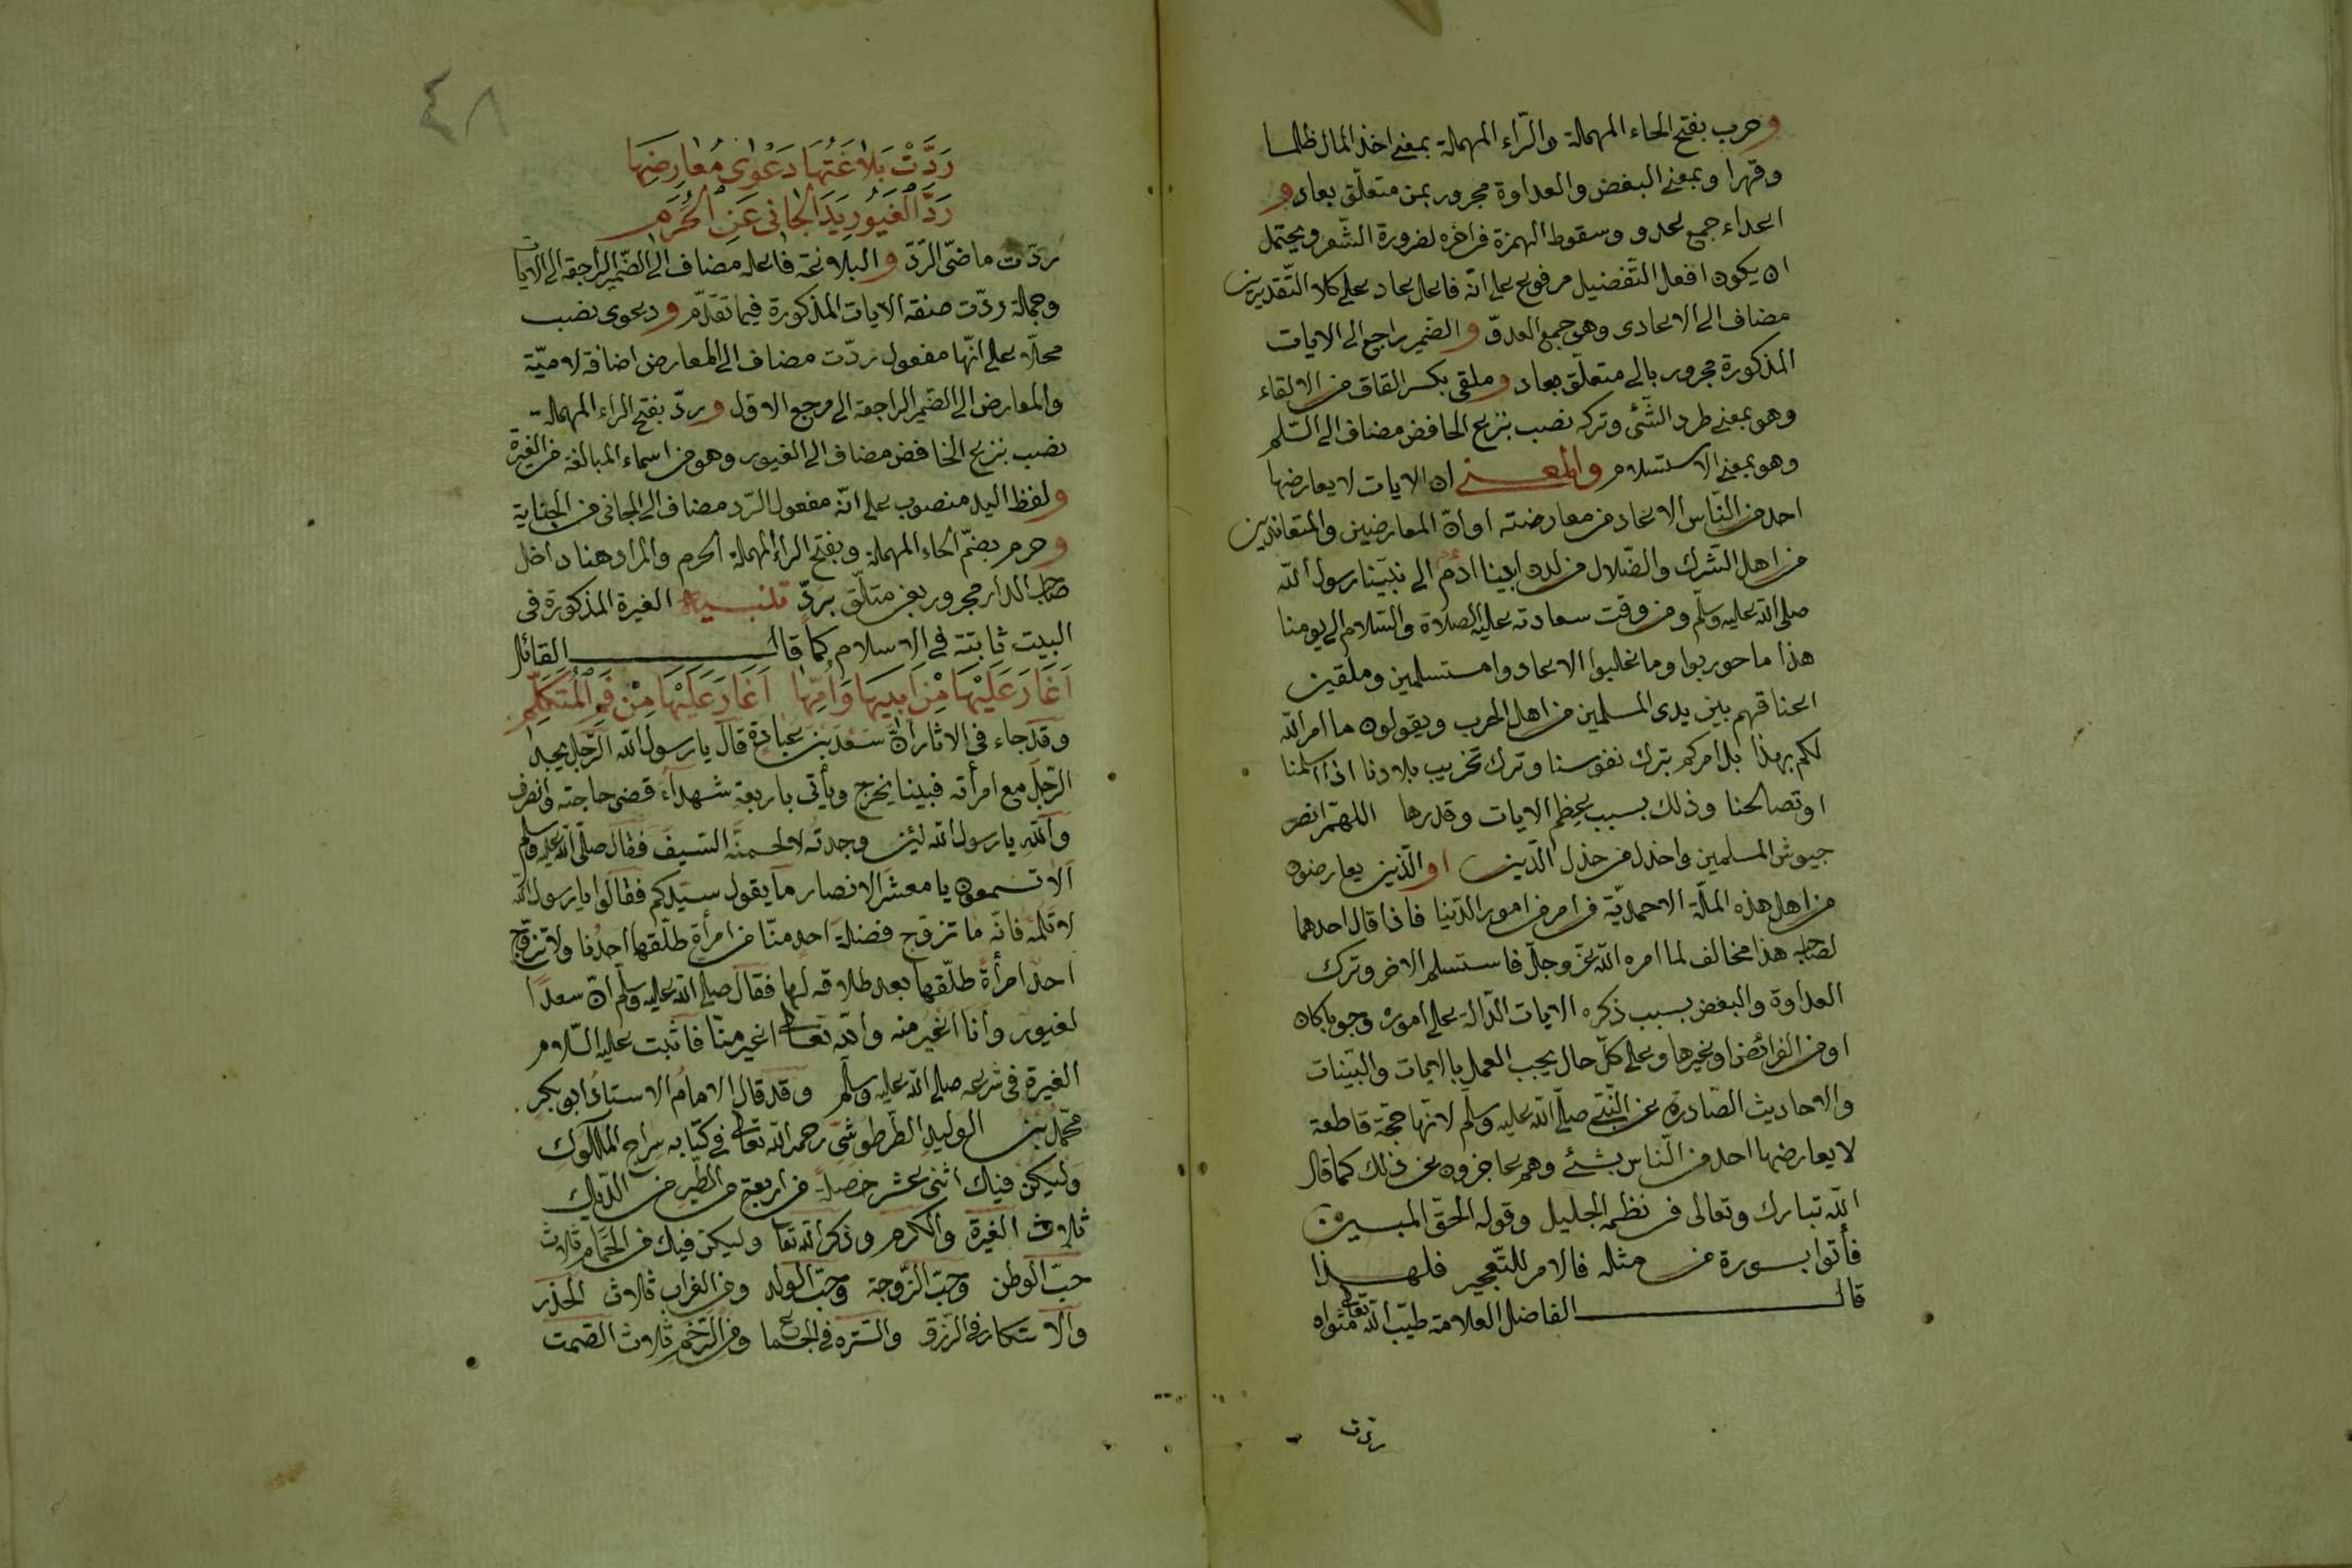 وحرب بفتح الحاء المهملة والرّاء المهملة بمعنى اخذ المال ظلما
وقهرا وبمعنى البغض والعداوة مجرور بمن متعلّق بعاد و
اعداء جمع عدو وسقوط الهمزة فى اخره لضرورة الشّعر ويحتمل
ان يكون افعل التّفضيل مرفوع على انّه فاعل عاد على كلا التّقديرين
مضاف الى الاعادى وهى جمع العدوّ والضّمير راجع الى الايات
المذكورة مجرور بالى متعلّق بعاد وملقى بكسر القاف من الالقاء
وهو بمعنى طرد الشّئ وتركه نصب بنزع الخافض مضاف الى السّلم
وهو بمعنى الاستسلام والمعنى ان الايات لا يعارضها
احد من النّاس الا عاد عن معارضته او انّ المعارضين والمتعاندين
من اهل الشّرك والضّلال من لدن ابينا ادم الى نبيّنا رسول الله
صلى الله عليه وسلّم ومن وقت سعادته عليه الصلاة والسّلام الى يومنا
هذا ما حوربوا وما غلبوا الا عادوا مستسلمين وملقين
اعناقهم بين يدى المسلمين من اهل الحرب ويقولون ما امر الله
لكم بهذا بل امركم بترك نفوسنا وترك تخريب بلادنا اذا اسلمنا
او تصالحنا وذلك بسبب عظم الايات وقدرها اللهمّ انصر
جيوش المسلمين واخذل من خذل الدّين او الّذين يعارضون
من اهل هذه الملّة الاحمديّة فى امر من امور الدّنيا فاذا قال احدهما
لصاحبه هذا مخالف لما امره الله عزّ وجلّ فاستسلم الاخر وترك
العداوة والبغض بسبب ذكره الايات الدّالة على اموره وجوبا كان
او من الفرائض او غيرها وعلى كلّ حال يجب العمل بالايات والبيّنات
والاحاديث الصّادرة عن النّبىّ صلّى الله عليه وسلّم لانّها حجّة قاطعة
لا يعارضها احد من النّاس بشئ وهم عاجزون عن ذلك كما قال
الله تبارك وتعالى فى نظمه الجليل وقوله الحقّ المبين
فأتوا بسورة من مثله فالامر للتّعجيز فلهذا
قال الفاضل العلامة طيّب الله تعالى مثواه
ردت
٤٨
رَدَّتْ بَلاَغَتُهَا دَعْوٰى مُعَارِضِهَا
رَدَّ الْغَيُورِ يَدَ الْجَانِى عَنِ الْحُرَمِ
ردّت ماضى الرّدّ والبلاغة فاعله مضاف الى الضّمير الراجعة الى الايات
وجملة ردّت صفة الايات المذكورة فيما تقدّم ودعوى نصب
محلّا على انّها مفعول ردّت مضاف الى المعارض اضافة لاميّة
والمعارض الى الضّمير الراجعة الى مرجع الاول وردّ بفتح الراء المهملة
نصب بنزع الخافض مضاف الى الغيور وهو من اسماء المبالغة من الغيرة
ولفظ اليد منصوب على انّه مفعول الرّد مضاف الى الجانى من الجناية
وحرم بضمّ الحاء المهملة وبفتح الراء المهملة الحرم والمراد هنا داخل
صاحب الدار مجرور بعن متعلّق بردّ تنبيه الغيرة المذكورة فى
البيت ثابتة فى الاسلام كما قال القائل
اَغَارَ عَلَيْهَا مِنْ اَبِيهَا وَاُمِّهَا اَغَارَ عَلَيْهَا مِنْ فَمِ الْمُتَكَلِّمِ
وقد جاء فى الاثار انّ سعد بن عبادة قال يا رسول الله الرّجل يجد
الرّجل مع امرأته فبينا يخرج ويأتى باربعة شهداء قضى حاجته وانصرف
والله يا رسول الله لئن وجدته لالحمنّه السّيف فقال صلّى الله عليه وسلم
الا تسمعون يا معشر الانصار ما يقول سيّدكم فقالوا يا رسول الله
لا تلمه فانّه ما تزوّج فضلة احد منّا من امرأة طلّقها احدنا ولا تزوّج
احد امرأة طلّقها بعد طلاقه لها فقال صلى الله عليه وسلّم انّ سعدا
لغيور وانا اغير منه والله تعالى اغير منّا فاثبت عليه السّلام
الغيرة فى شرعه صلى الله عليه وسلّم وقد قال الامام الاستاذ ابو بكر
محمّد بن الوليد الطّرطوشىّ رحمه الله تعالى فى كتابه سراج الملوك
وليكن فيك اثنى عشر خصلة من اربعة من الطّير من الدّيك
ثلاث الغيرة والكرم وذكر الله تعا وليكن فيك من الحمام ثلاث
حبّ الوطن وحبّ الزّوجة وحبّ الولد ومن الغراب ثلاث الحذر
والابتكار فى الرزق والتستره فى الجماع ومن الرّخم ثلاث الصّمت